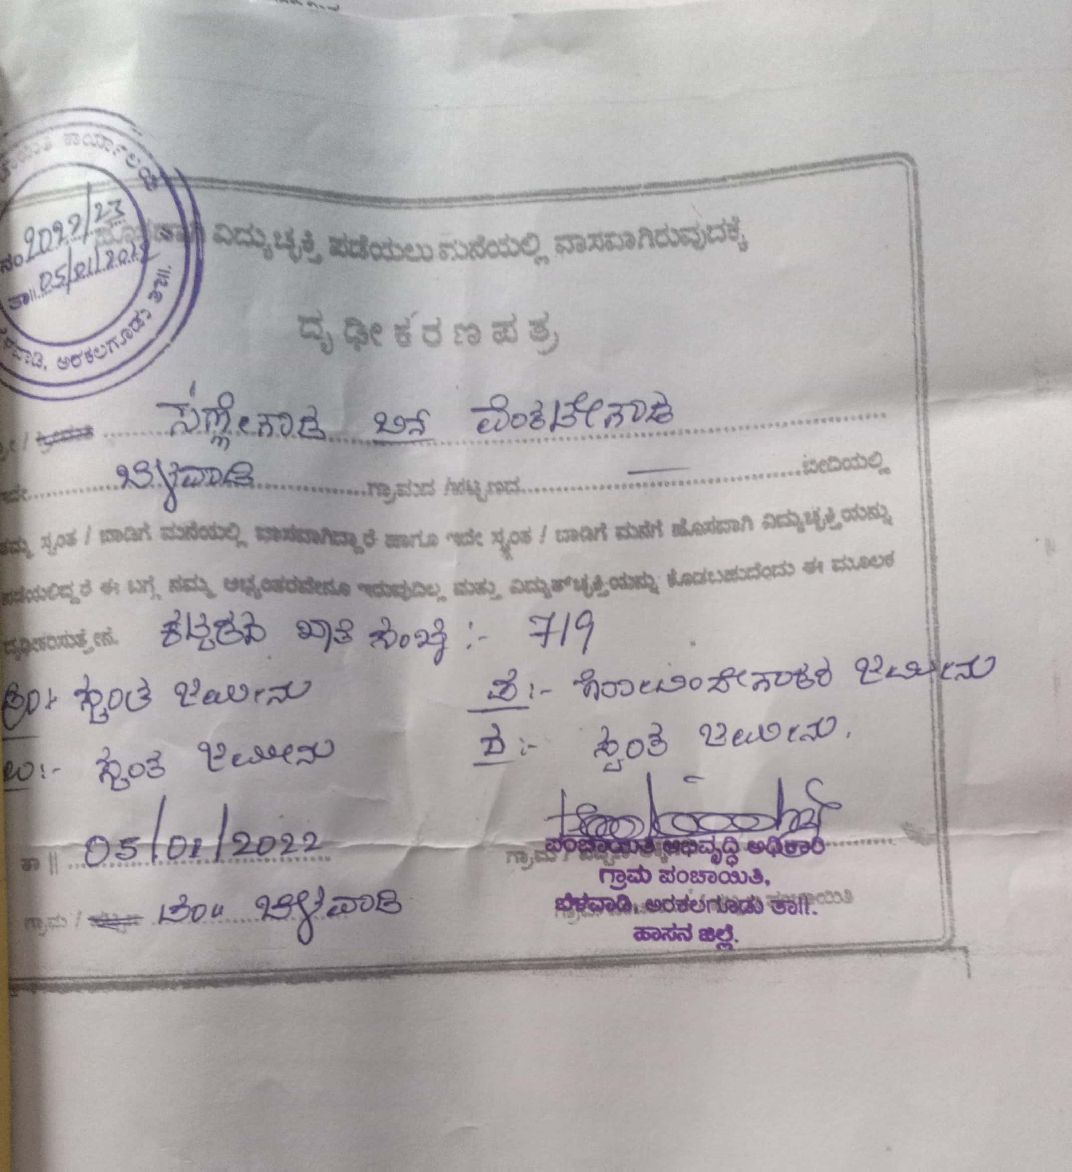 ಕಾರ್ಯಾಲಯ
ನಂ 2022/23
ತಾ|| 05/01/2022
ಅರಕಲಗೂಡು ತಾ||.
ವಿದ್ಯುಚ್ಛಕ್ತಿ ಪಡೆಯಲು ಮನೆಯಲ್ಲಿ ವಾಸವಾಗಿರುವುದಕ್ಕೆ
ದೃಢೀಕರಣ ಪತ್ರ
ಸಣ್ಣೇಗೌಡ ಬಿನ್ ವೆಂಕಟೇಗೌಡ
ಬೆಳವಾಡಿ ಗ್ರಾಮದ /ಪಟ್ಟಣದ ಬೀದಿಯಲ್ಲಿ
ತಮ್ಮ ಸ್ವಂತ / ಬಾಡಿಗೆ ಮನೆಯಲ್ಲಿ ವಾಸವಾಗಿದ್ದಾರೆ ಹಾಗೂ ಇದೇ ಸ್ವಂತ / ಬಾಡಿಗೆ ಮನೆಗೆ ಹೊಸದಾಗಿ ವಿದ್ಯುಚ್ಛಕ್ತಿಯನ್ನು
ಪಡೆಯಲಿದ್ದರೆ ಈ ಬಗ್ಗೆ ನಮ್ಮ ಅಭ್ಯಂತರವೇನೂ ಇರುವುದಿಲ್ಲ ಮತ್ತು ವಿದ್ಯುತ್‌ಚ್ಛಕ್ತಿಯನ್ನು ಕೊಡಬಹುದೆಂದು ಈ ಮೂಲಕ
ದೃಢೀಕರಿಸುತ್ತೇನೆ. ಕಟ್ಟಡದ ಖಾತೆ ಸಂಖ್ಯೆ :- 719
ಸ್ವಂತ ಜಮೀನು ಪ :- ಜಮೀನು
ಉ:- ಸ್ವಂತ ಜಮೀನು ದ :- ಸ್ವಂತ ಜಮೀನು.
ತಾ || 05/01/2022
ಪಂಚಾಯಿತಿ ಅಭಿವೃದ್ಧಿ ಅಧಿಕಾರಿ
ಗ್ರಾಮ ಪಂಚಾಯಿತಿ,
ಗ್ರಾಮ / ಬೆಳವಾಡಿ ಬೆಳವಾಡಿ, ಅರಕಲಗೂಡು ತಾ||.
ಹಾಸನ ಜಿಲ್ಲೆ.